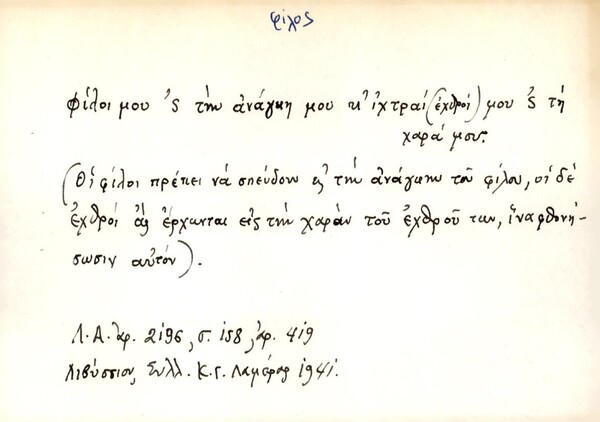 φίλος
Φίλοι μου 'ς την ἀνάγκη μου κ' ἰχτραί (ἐχθροί) μου 'ς τή
χαρά μου.
(Οἱ φίλοι πρέπει νά σπεύδουν εἰς τήν ἀνάγκην τοῦ φίλου, οἱ δέ
ἐχθροί ἄς ἔρχωνται εἰς τήν χαράν τοῦ ἐχθροῦ των, ἵνα φθονή-
σωσιν αὐτόν).
Λ.Α. ἀρ. 2196, σ. 158, ἀρ. 419
Λιβύσσιον, Συλλ. Κ.Γ. Λαμέρας 1941.